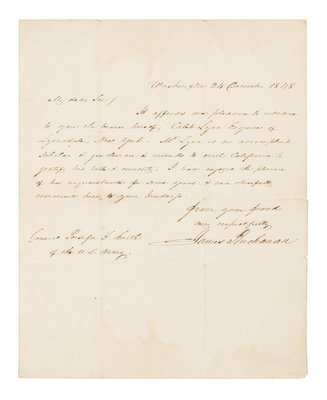 Washington 24 December 1848
My dear Sir/
It affords me pleasure to introduce
to you the bearer hereof, Caleb Lyon Esquire of
Lyonsdale, New York. Mr Lyon is an accomplished
scholar & gentleman & intends to visit California to
gratify his taste & curiosity. I have enjoyed the pleasure
of his acquaintance for some years & can cheerfully
commend him to your kindness.
From your friend
very respectfully
James Buchanan
General Persifor F. Smith
of the U.S. Army.